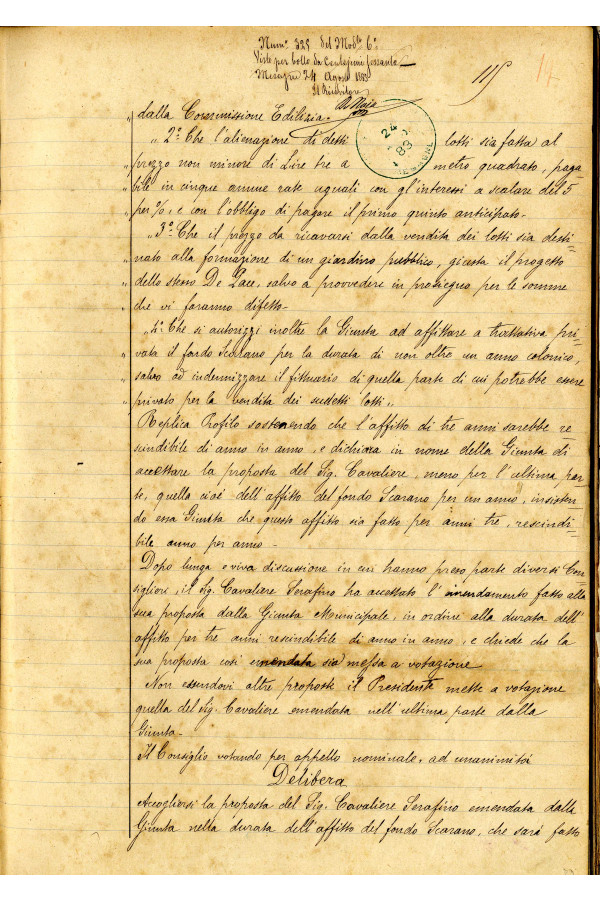 Num.º 325 del Mod.lo 6º
Visto per bollo da Centesimi sessanta
Mesagne 24 Agosto 1883
Il Ricevitore
115
14
24
83
dalla Commissione Edilizia.
„ 2º Che l'alienazione di detti lotti sia fatta al
prezzo non minore di Lire tre a metro quadrato, paga
bile in cinque annue rate uguali con gl'interessi a scalare del 5
per %, e con l'obbligo di pagare il primo quinto anticipato.
„ 3º Che il prezzo da ricavarsi dalla vendita dei lotti sia desti=
nato alla formazione di un giardino pubblico, giusta il progetto
dello stesso De Pace, salvo a provvedere in prosieguo per le somme
che vi faranno difetto.
„ 4º Che si autorizzi inoltre la Giunta ad affittare a trattativa pri=
vata il fondo Scarano per la durata di non oltre un anno colonico,
salvo ad indennizzare il fittuario di quella parte di cui potrebbe essere
privato per la vendita dei suddetti lotti„
Replica Profilo sostenendo che l'affitto di tre anni sarebbe re
scindibile di anno in anno, e dichiara in nome della Giunta di
accettare la proposta del Sig. Cavaliere, meno per l'ultima par
te, quella cioè dell'affitto del fondo Scarano per un anno, insisten
do essa Giunta che questo affitto sia fatto per anni tre, rescindi=
bile anno per anno.
Dopo lunga e viva discussione in cui hanno preso parte diversi Con=
siglieri, il Sig. Cavaliere Serafino ha accettato l'emendamento fatto alla
sua proposta dalla Giunta Municipale, in ordine alla durata dell'
affitto per tre anni rescindibile di anno in anno, e chiede che la
sua proposta così emendata sia messa a votazione
Non essendovi altre proposte il Presidente mette a votazione
quella del Sig. Cavaliere emendata nell'ultima parte dalla
Giunta.
Il Consiglio votando per appello nominale, ad unanimità
Delibera
Accogliersi la proposta del Sig. Cavaliere Serafino emendata dalla
Giunta nella durata dell'affitto del fondo Scarano, che sarà fatto